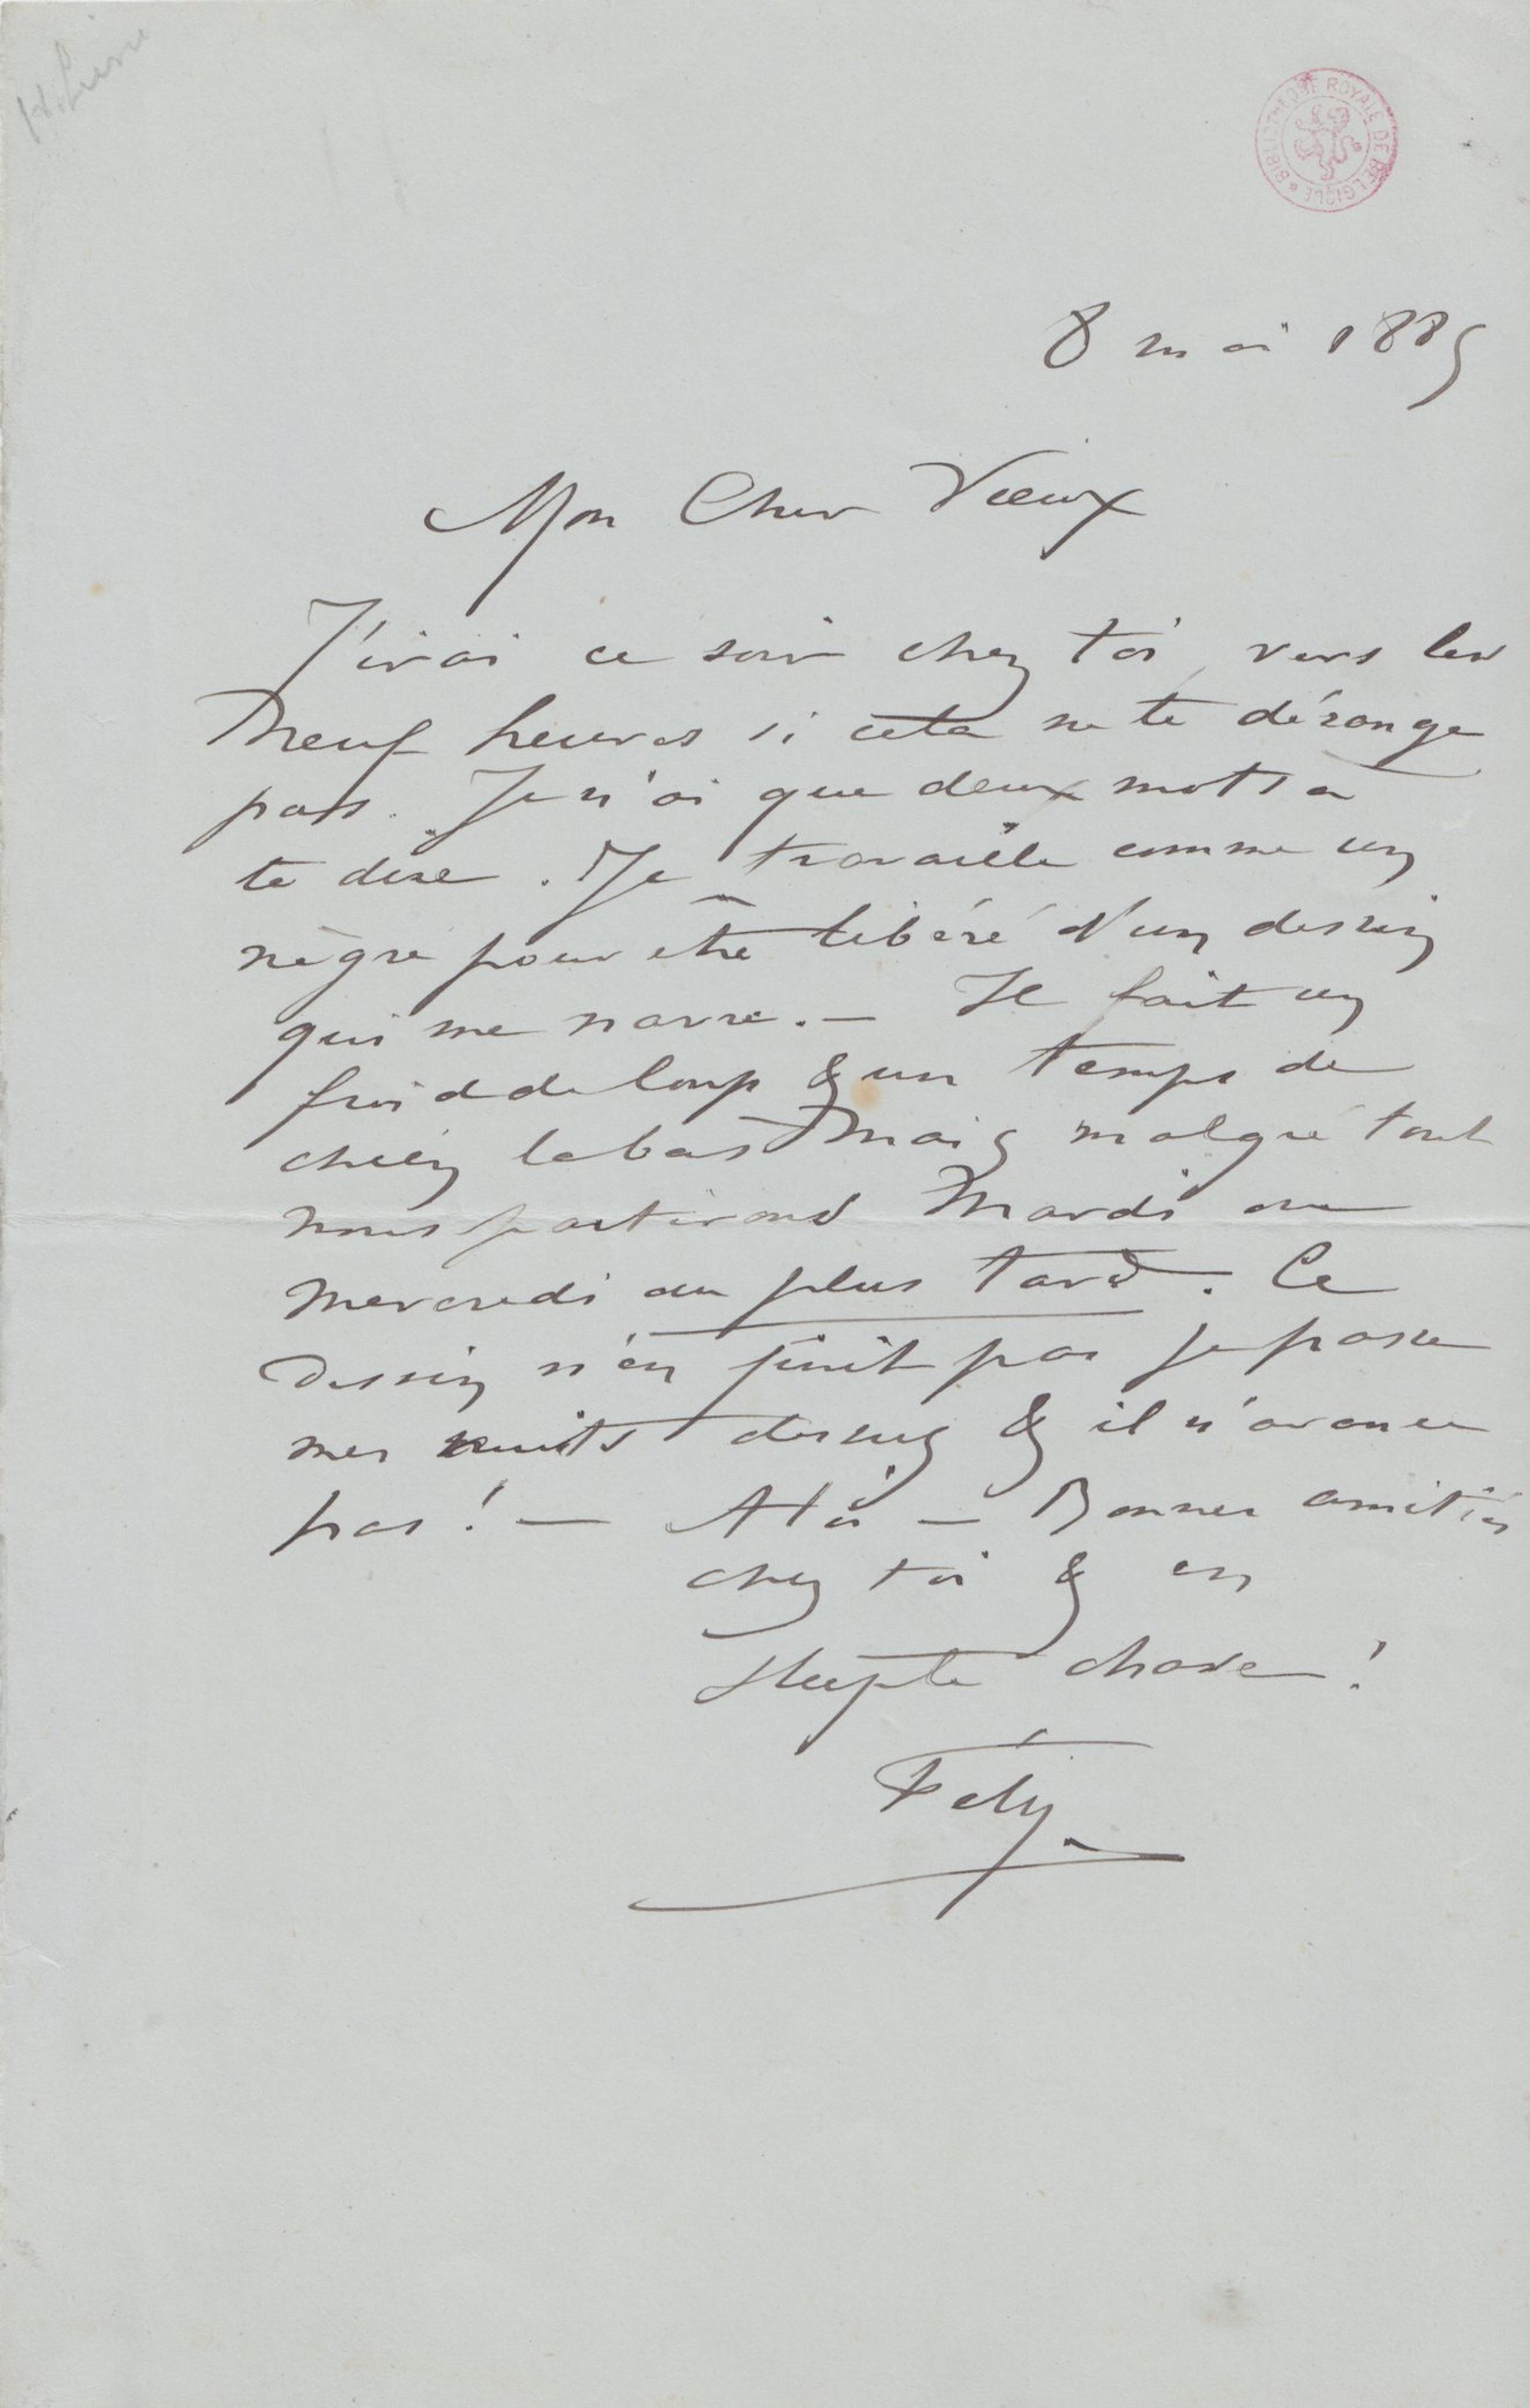 BIBLIOTHÈQUE ROYALE DE BELGIQUE
8 mai 1885
Mon Cher Vieux
J'irai ce soir chez toi, vers les
neuf heures si cela ne te dérange
pas. Je n'ai que deux mots a
te dire. Je travaille comme un
nègre pour être libéré d'un dessin
qui me navre. — Il fait un
froid de loup & un temps de
chien labas mais malgré tout
nous partirons Mardi ou
mercredi au plus tard. Ce
dessin n'en finit pas je passe
mes nuits dessus & il n'avance
pas ! — A toi — Bonnes amitiés
chez toi & en
chose !
Fély